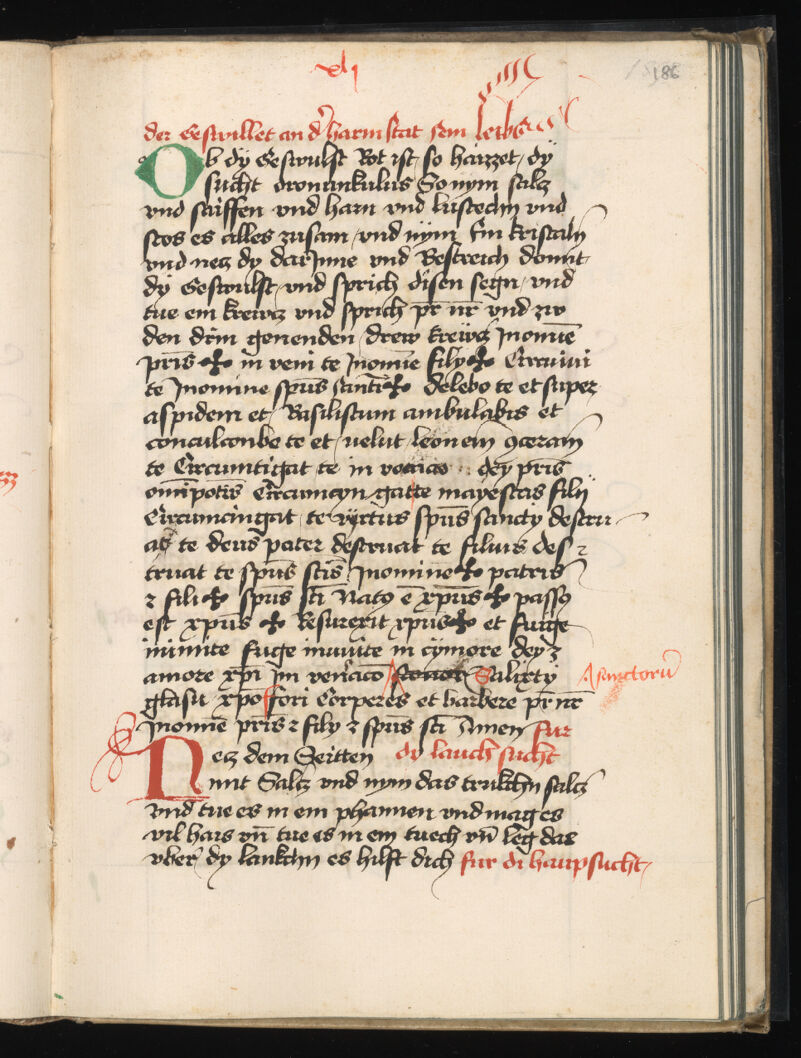 xlj
186
der Geswillet an dˀ harm stat sein leibes
Ob dÿ Geswulst Rot ist / so haizzet / dÿ
sucht dronunkulus So nym salcz
vnd saiffen vnd harn vnd lustechn vnd
stos es alles zusam / vnd nÿm Ein kristaln
vnd necz dy dar Jnne vnd Bestreich domit
dÿ Geswulst / vnd sprich disen segn / vnd
tue ein krewcz vnd sprich pr̄ nr̄ vnd zw
den drin genenden / drew krewcz Jnomīe
pr̄is ✤ in veni te Jnomīe filÿ ✤ Circuiui
te Jnomine sp̄us sancti ✤ delebo te et super
aspidem et Basiliscum ambulabis et
conculcanbe te et / uelut / leonem
te Circumtigat te in dey pr̄is
om̄ipotīs Circumcyn gat te mayestas filij
Circumcingat te virtus sp̄us sancty destru
at te deus pater destruat te filius des
truat te sp̄us sc̄is Jnomine ✤ patris
⁊ fili ✤ sp̄us sc̄i Nato e xp̄us ✤ passo
est xp̄us ✤ Resurexit xp̄us ✤ et furge
inimite fuge inuite in tymore dey ⁊
amore xp̄i Jm Salixty
sanctorū
glasii xp̄offori Corperes et barbere pr̄ nr̄
Jnomīe pr̄is ⁊ fily ⁊ sp̄us sc̄i Amen fur
Necz dem Seitten dy lauch sucht
Nimt Salcz vnd nym das trukchn salcz
vnd tue es in ein phannen vnd mag es
vil hais vn̄ tue es in ein tuech vn̄ leg das
vberˀ dy lankchn es hilft dich fur di haupsucht